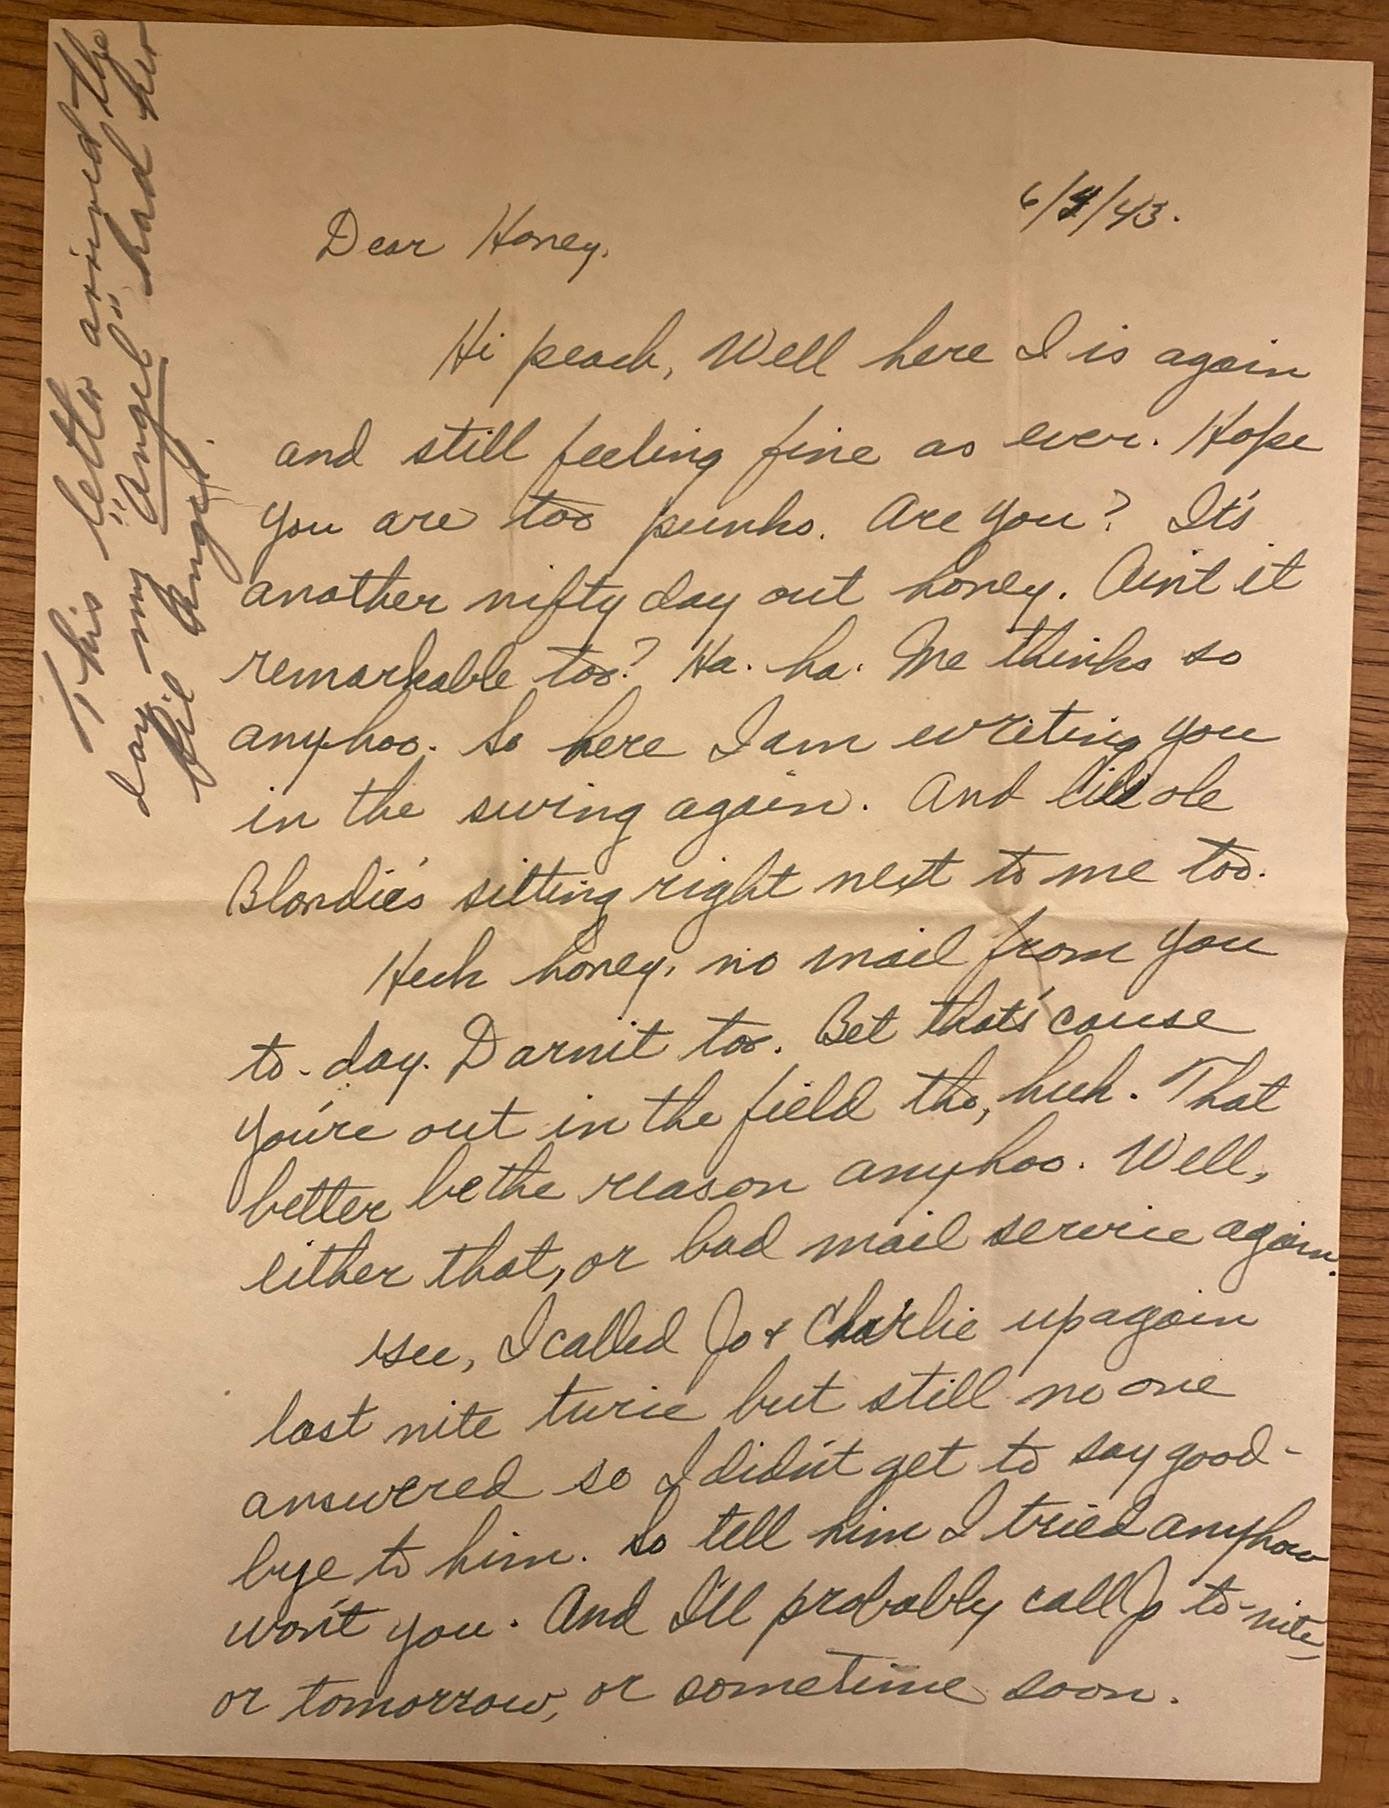 6/4/43.
Dear Honey,
Hi peach, Well here I is again
and still feeling fine as ever. Hope
you are too punks. Are you? It's
another nifty day out honey. Ain't it
remarkable too? Ha. ha. Me thinks so
anyhoo. So here I am writing you
in the swing again. And lil ole
Blondie's sitting right next to me too.
Heck honey, no mail from you
to-day. Darnit too. Bet that's cause
you're out in the field tho, huh. That
better be the reason anyhoo. Well,
either that, or bad mail service again.
see, I called Jo & Charlie up again
last nite twice but still no one
answered so I didn't get to say good-
bye to him. So tell him I tried anyhow
won't you. And I'll probably call Jo to-nite,
or tomorrow, or sometime soon.
This letter arrived the
day my "Angel" had her
lil Angel.